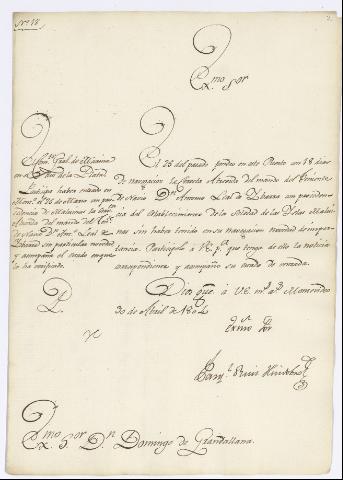 Nº 18
Exmo Sor
El Comte Gral de Marina
en el Rio de la Plata
Participa haber entrado en
Montº el 25 de Marzo
procedencia de Malvinas la
al mando del
de Navio Dn Antº Leal de
Ybarra sin particular novedad
y acompaña el estado
lo ha verificado.
El 25 del pasado fondeó en este Puerto con 18 dias
de navegacion la Corveta Atrevida del mando del Teniente
de Navio Dn Antonio Leal de Ybarra en proceden-
cia del Establecimiento de la Soledad de las Yslas Malvi-
nas sin haber tenido en su navegacion novedad de impor-
tancia. Participolo à VE. pª que tenga de ello la noticia
correspondiente y acompaño su estado de entrada.
Dios gue à VE. ms as Montevideo
30 de Abril de 1804
Exmo Sor
Exmo Sor Dn Domingo de Grandallana.